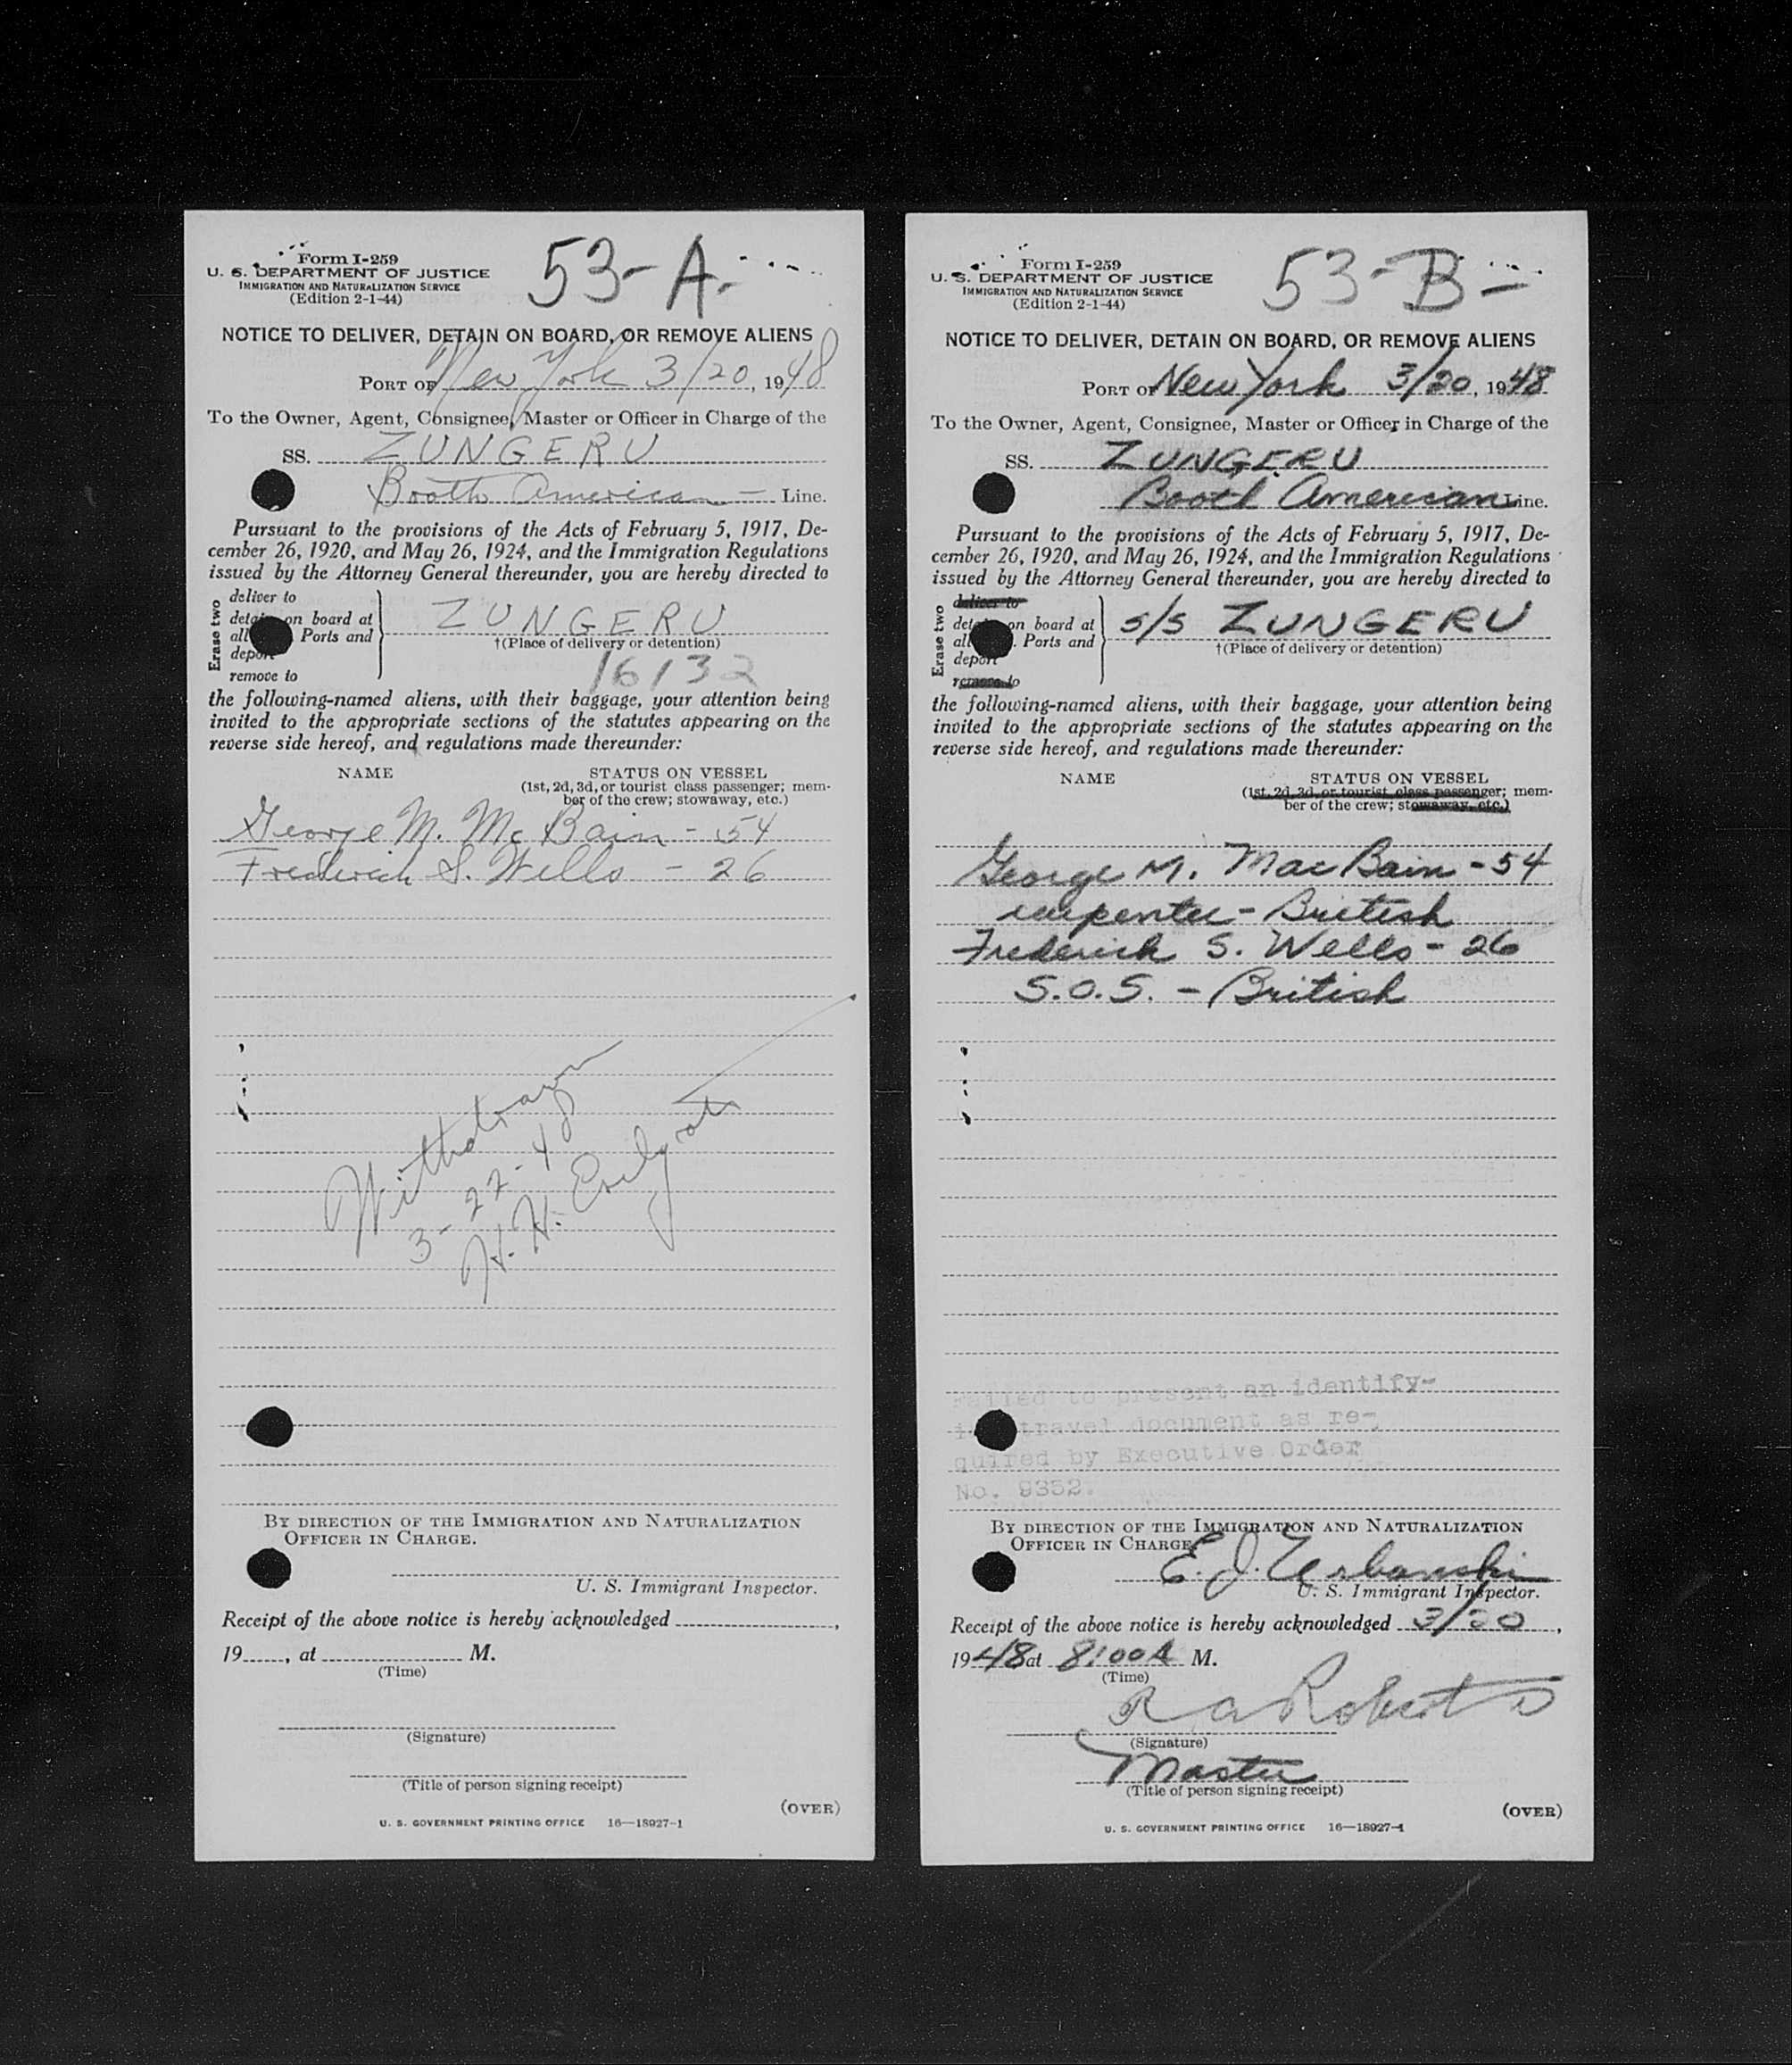 Form I-259
U. S. DEPARTMENT OF JUSTICE
IMMIGRATION AND NATURALIZATION SERVICE
(Edition 2-1-44)
53-A.
NOTICE TO DELIVER, DETAIN ON BOARD, OR REMOVE ALIENS
PORT OF New York 3/20, 1948
To the Owner, Agent, Consignee, Master or Officer in Charge of the
SS. ZUNGERU
Booth American - Line.
Pursuant to the provisions of the Acts of February 5, 1917, De-
cember 26, 1920, and May 26, 1924, and the Immigration Regulations
issued by the Attorney General thereunder, you are hereby directed to
Erase two
deliver to
on board at
all Ports and
deport
remove to
ZUNGERU
†(Place of delivery or detention)
16132
the following-named aliens, with their baggage, your attention being
invited to the appropriate sections of the statutes appearing on the
reverse side hereof, and regulations made thereunder:
NAME STATUS ON VESSEL
(1st, 2d, 3d, or tourist class passenger; mem-
ber of the crew; stowaway, etc.)
George M. McBain - 54
Frederick S. Wells - 26
Withdrawn
3-22-4
H. H.
BY DIRECTION OF THE IMMIGRATION AND NATURALIZATION
OFFICER IN CHARGE.
U. S. Immigrant Inspector.
Receipt of the above notice is hereby acknowledged ,
19 , at M.
(Time)
(Signature)
(Title of person signing receipt)
(OVER)
U. S. GOVERNMENT PRINTING OFFICE 16—18927-1
Form I-259
U. S. DEPARTMENT OF JUSTICE
IMMIGRATION AND NATURALIZATION SERVICE
(Edition 2-1-44)
53-B-
NOTICE TO DELIVER, DETAIN ON BOARD, OR REMOVE ALIENS
PORT OF New York 3/20, 1948
To the Owner, Agent, Consignee, Master or Officer in Charge of the
SS. ZUNGERU
Booth American Line.
Pursuant to the provisions of the Acts of February 5, 1917, De-
cember 26, 1920, and May 26, 1924, and the Immigration Regulations
issued by the Attorney General thereunder, you are hereby directed to
Erase two
deliver to
on board at
all Ports and
deport
remove to
S/S ZUNGERU
†(Place of delivery or detention)
the following-named aliens, with their baggage, your attention being
invited to the appropriate sections of the statutes appearing on the
reverse side hereof, and regulations made thereunder:
NAME STATUS ON VESSEL
(1st, 2d, 3d, or tourist class passenger; mem-
ber of the crew; stowaway, etc.)
George M. MacBain - 54
carpenter - British
Frederick S. Wells - 26
S.O.S. - British
Failed to present an identify-
travel document as re-
quired by Executive Order
No. 9352.
BY DIRECTION OF THE IMMIGRATION AND NATURALIZATION
OFFICER IN CHARGE.
E. J. Urbanski
U. S. Immigrant Inspector.
Receipt of the above notice is hereby acknowledged 3/20,
1948 at 8:00 A M.
(Time)
R A Roberts
(Signature)
Master
(Title of person signing receipt)
(OVER)
U. S. GOVERNMENT PRINTING OFFICE 16—18927-1